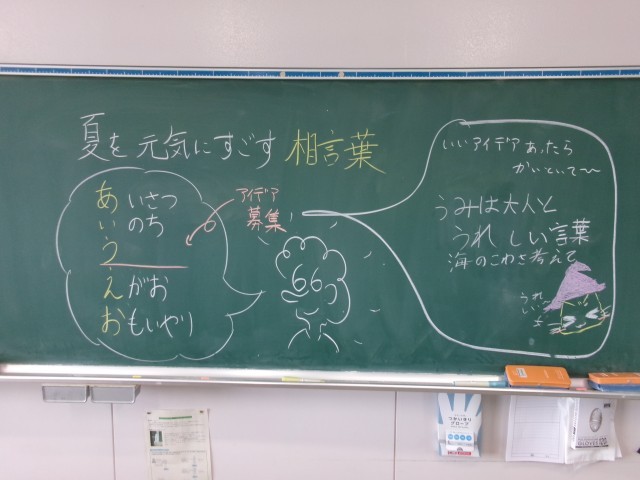 夏を元気にすごす相言葉
あいさつ
いのち
う
えがお
おもいやり
アイデア
募集
いいアイデアあったら
かいといて〜
うみは大人と
うれしい言葉
海のこわさ考えて
うれ
しい